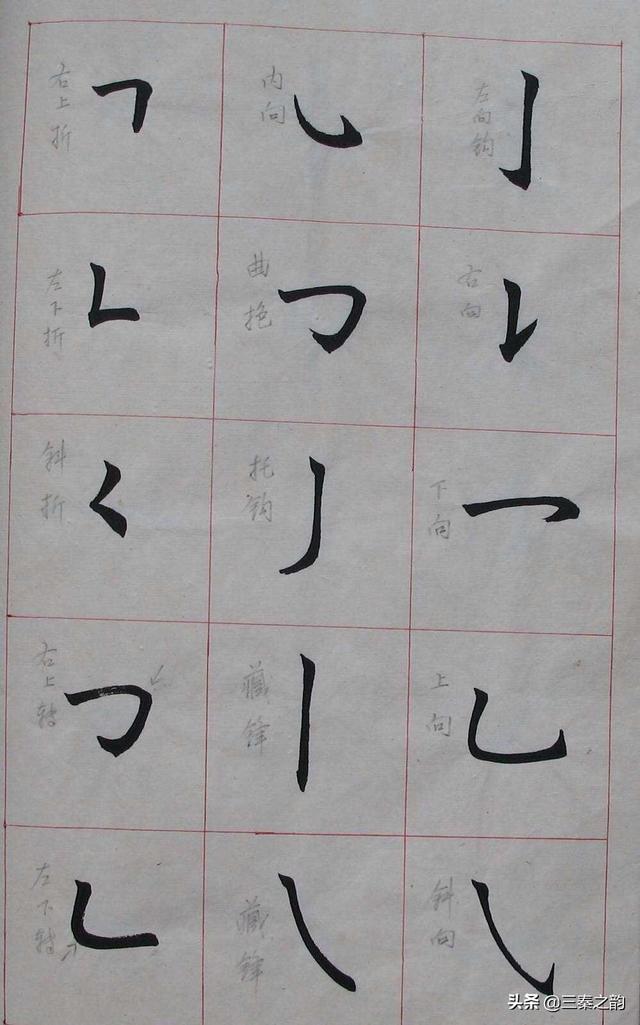 左向钩
右向
下向
上向
斜向
内向
曲抱
托钩
藏锋
藏锋
右上折
左下折
斜折
右上转
左下转
头条 @三秦之韵